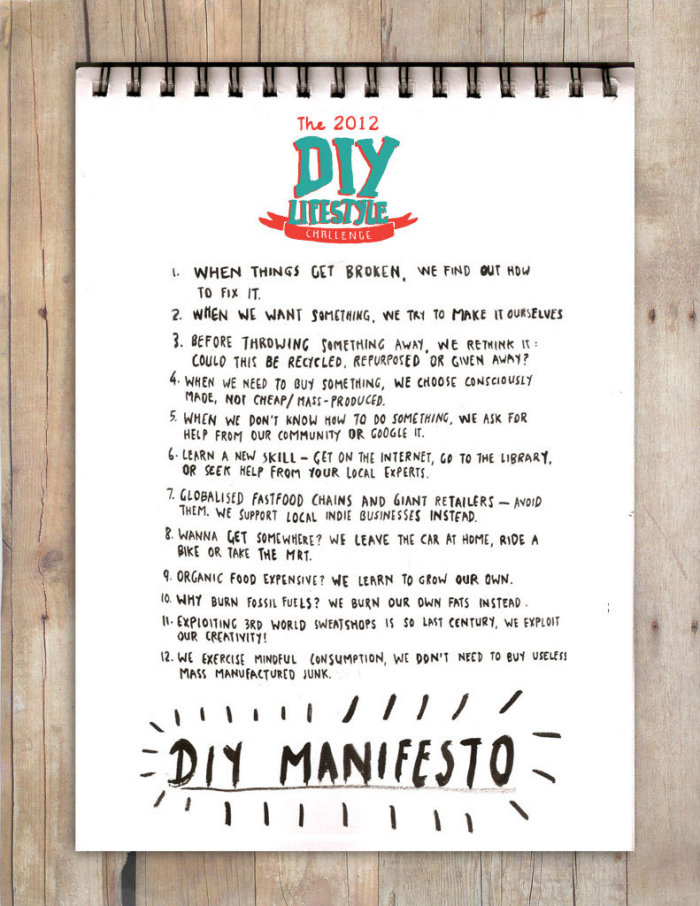 The 2012
DIY
LIFESTYLE
CHALLENGE
1. WHEN THINGS GET BROKEN, WE FIND OUT HOW
TO FIX IT.
2. WHEN WE WANT SOMETHING, WE TRY TO MAKE IT OURSELVES
3. BEFORE THROWING SOMETHING AWAY, WE RETHINK IT:
COULD THIS BE RECYCLED, REPURPOSED OR GIVEN AWAY?
4. WHEN WE NEED TO BUY SOMETHING, WE CHOOSE CONSCIOUSLY
MADE, NOT CHEAP/MASS-PRODUCED.
5. WHEN WE DON'T KNOW HOW TO DO SOMETHING, WE ASK FOR
HELP FROM OUR COMMUNITY OR GOOGLE IT.
6. LEARN A NEW SKILL – GET ON THE INTERNET, GO TO THE LIBRARY,
OR SEEK HELP FROM YOUR LOCAL EXPERTS.
7. GLOBALISED FASTFOOD CHAINS AND GIANT RETAILERS – AVOID
THEM. WE SUPPORT LOCAL INDIE BUSINESSES INSTEAD.
8. WANNA GET SOMEWHERE? WE LEAVE THE CAR AT HOME, RIDE A
BIKE OR TAKE THE MRT.
9. ORGANIC FOOD EXPENSIVE? WE LEARN TO GROW OUR OWN.
10. WHY BURN FOSSIL FUELS? WE BURN OUR OWN FATS INSTEAD.
11. EXPLOITING 3RD WORLD SWEATSHOPS IS SO LAST CENTURY, WE EXPLOIT
OUR CREATIVITY!
12. WE EXERCISE MINDFUL CONSUMPTION, WE DON'T NEED TO BUY USELESS
MASS MANUFACTURED JUNK.
DIY MANIFESTO